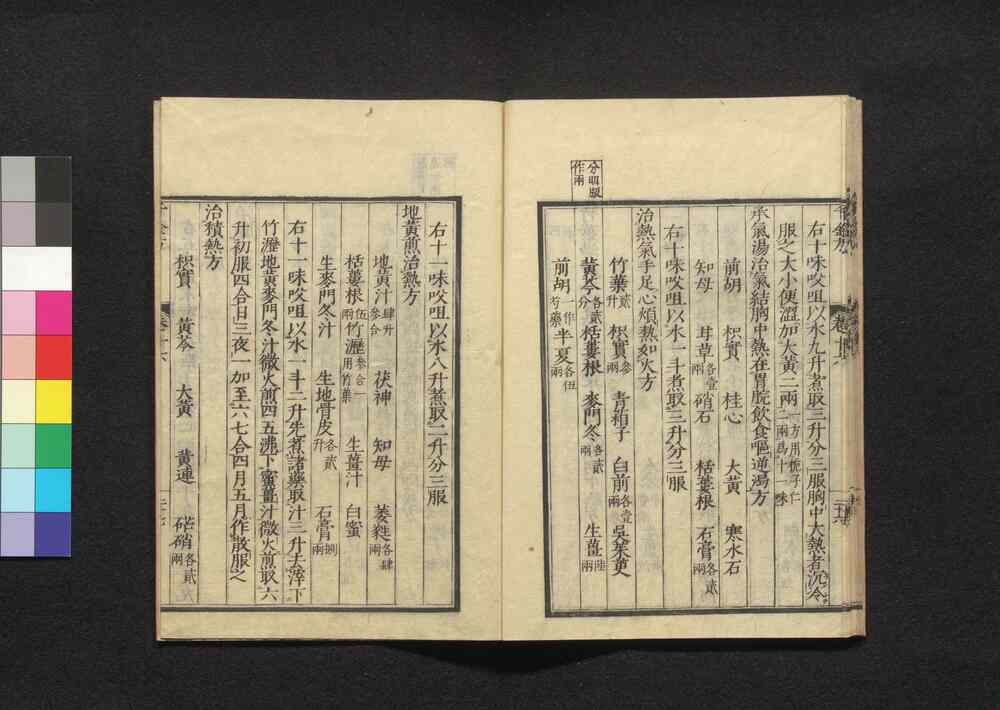 右十味㕮咀以水九升煮取三升分三服胸中大熱者沉冷
服之大小便澀加大黃二兩一方用梔子仁
二兩爲十一味
承氣湯治氣結胸中熱在胃脘飲食嘔逆渴方
前胡 枳實 桂心 大黃 寒水石
知母 甘草各壹兩 硝石 栝蔞根 石膏各貳兩
右十味㕮咀以水一斗煮取三升分三服
治熱氣手足心煩熱如火方
竹葉貳升 枳實參兩 青葙子 白前各壹兩 吳茱萸
黃芩各貳分 栝蔞根 麥門冬各貳兩 生薑陸兩
前胡一作芍藥 半夏各伍兩
分明版
作兩
右十一味㕮咀以水八升煮取二升分三服
地黃煎治熱方
地黃汁肆升參合 茯神 知母 萎蕤各肆兩
栝蔞根伍兩 竹瀝參合一用竹葉 生薑汁 白蜜
生麥門冬汁 生地骨皮各貳升 石膏捌兩
右十一味㕮咀以水一斗二升先煮諸藥取汁三升去滓下
竹瀝地黃麥門冬汁微火煎四五沸下蜜薑汁微火煎取六
升初服四合日三夜一加至六七合四月五月作散服之
治積熱方
枳實 黃芩 大黃 黃連 硭硝各貳兩